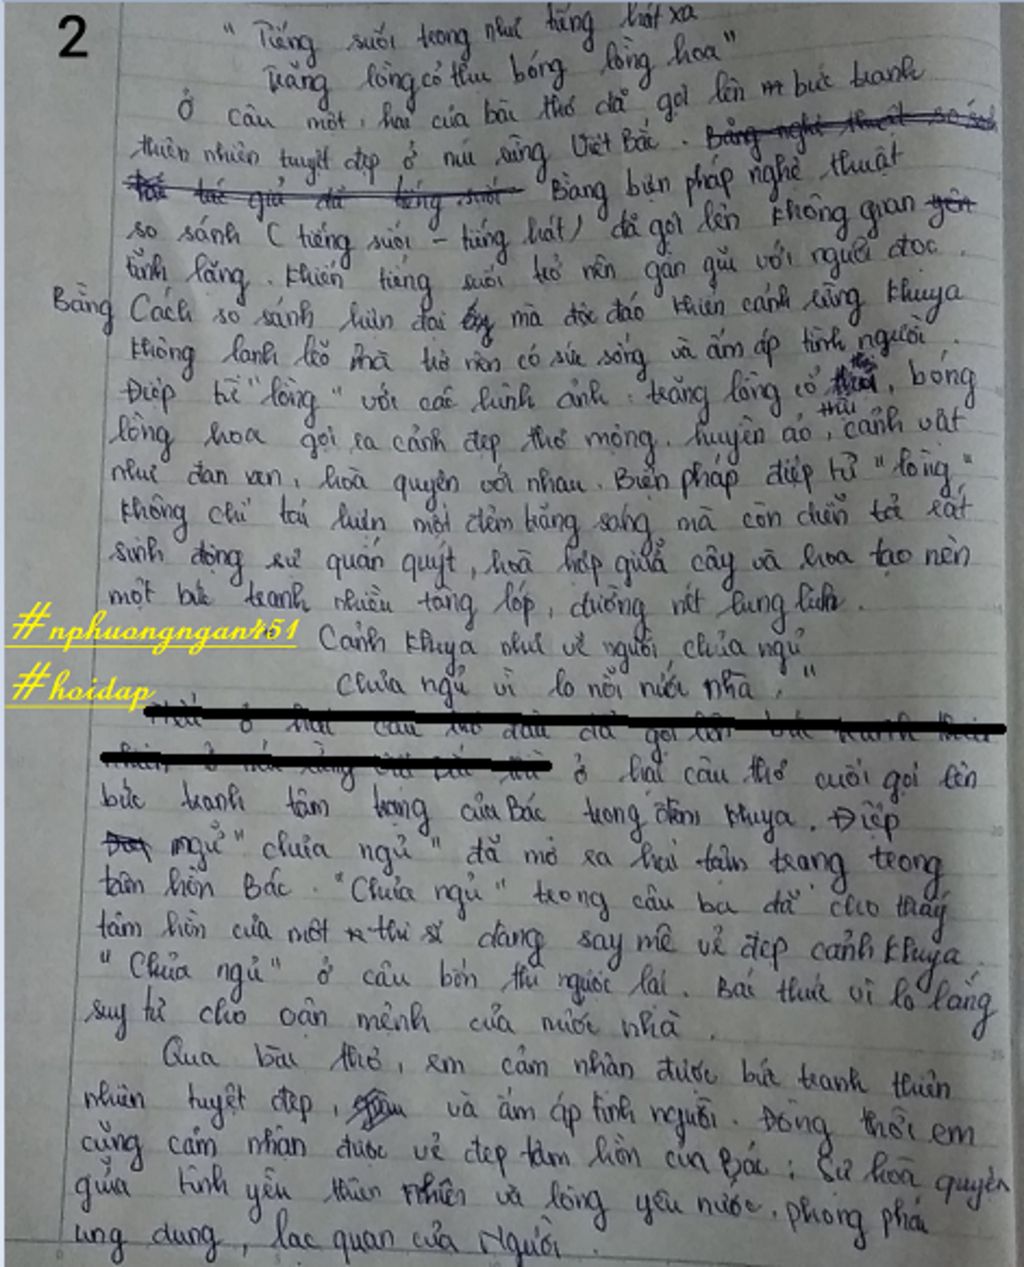 2
" Tiếng suối trong như tiếng hát xa
Trăng lồng cổ thụ bóng lồng hoa"
Ở câu một, hai của bài thơ đã gợi lên bức tranh
thiên nhiên tuyệt đẹp ở núi rừng Việt Bắc. Bằng nghệ thuật so sánh
tác giả đã tiếng suối Bằng biện pháp nghệ thuật
so sánh ( tiếng suối - tiếng hát) đã gợi lên không gian yên
tĩnh lặng. Khiến tiếng suối trở nên gần gũi với người đọc.
Bằng Cách so sánh hiện đại mà độc đáo khiến cảnh rừng khuya
không lạnh lẽo mà trở nên có sức sống và ấm áp tình người.
Điệp từ "lồng" với các hình ảnh: trăng lồng cổ thụ, bóng
lồng hoa gợi ra cảnh đẹp thơ mộng, huyền ảo, cảnh vật
như đan xen, hoà quyện với nhau. Biện pháp điệp từ "lồng"
không chỉ tái hiện một đêm trăng sáng mà còn diễn tả rất
sinh động sự quấn quýt, hoà hợp giữa cây và hoa tạo nên
một bức tranh nhiều tầng lớp, đường nét lung linh.
#nphuongngan451
" Cảnh khuya như vẽ người chưa ngủ
#hoidap
Chưa ngủ vì lo nỗi nước nhà. "
ở hai câu thơ đầu đã gợi lên bức tranh thiên
ở hai câu thơ cuối gợi lên
bức tranh tâm trạng của Bác trong đêm khuya. Điệp
ngữ "chưa ngủ" đã mở ra hai tâm trạng trong
tâm hồn Bác. "Chưa ngủ" trong câu ba đã cho thấy
tâm hồn của một thi sĩ đang say mê vẻ đẹp cảnh khuya.
"Chưa ngủ" ở câu bốn thì ngược lại. Bác thức vì lo lắng
suy tư cho vận mệnh của nước nhà.
Qua bài thơ, em cảm nhận được bức tranh thiên
nhiên tuyệt đẹp, và ấm áp tình người. Đồng thời em
cũng cảm nhận được vẻ đẹp tâm hồn của Bác: Sự hoà quyện
giữa tình yêu thiên nhiên và lòng yêu nước, phong thái
ung dung, lạc quan của Người.